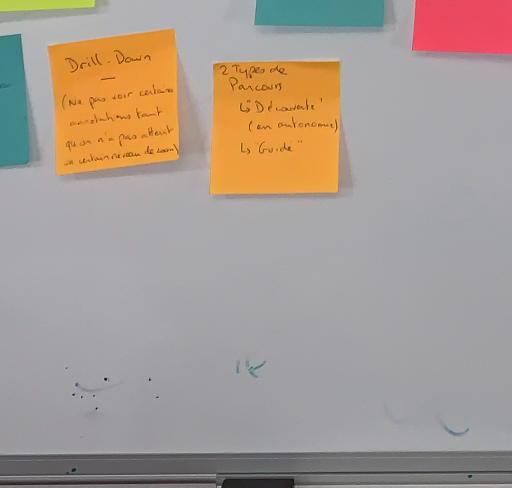 Drill-Down
(Ne pas voir certaines
annotations tant
qu'on n'a pas atteint
un certain niveau de zoom)
2 Types de
Parcours
↳ "Découverte"
(en autonomie)
↳ "Guidé"